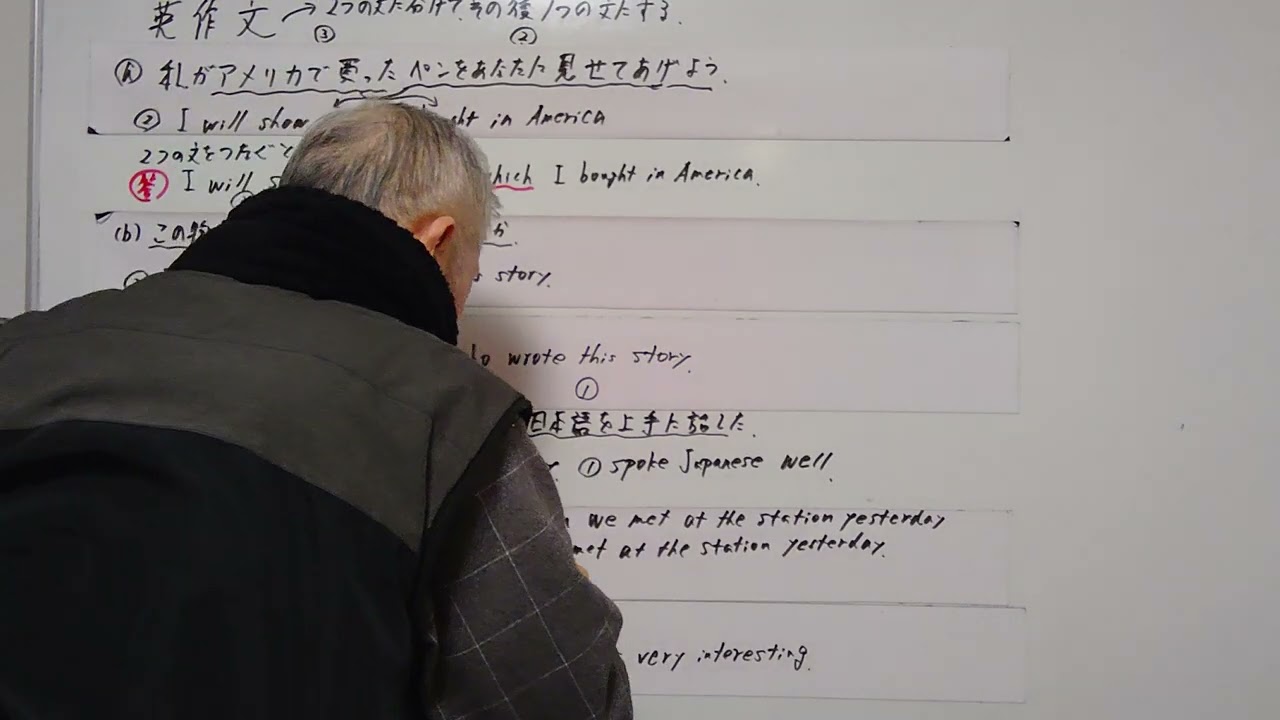 英作文 → 2つの文に分けて、その後1つの文にする.
③ ②
(a) 私がアメリカで買ったペンをあなたに見せてあげよう.
② I will show ght in America
2つの文をつなぐと
答 I will s hich I bought in America.
(b) この物 か.
s story.
o wrote this story.
①
日本語を上手に話した.
① spoke Japanese well.
we met at the station yesterday
met at the station yesterday.
very interesting.